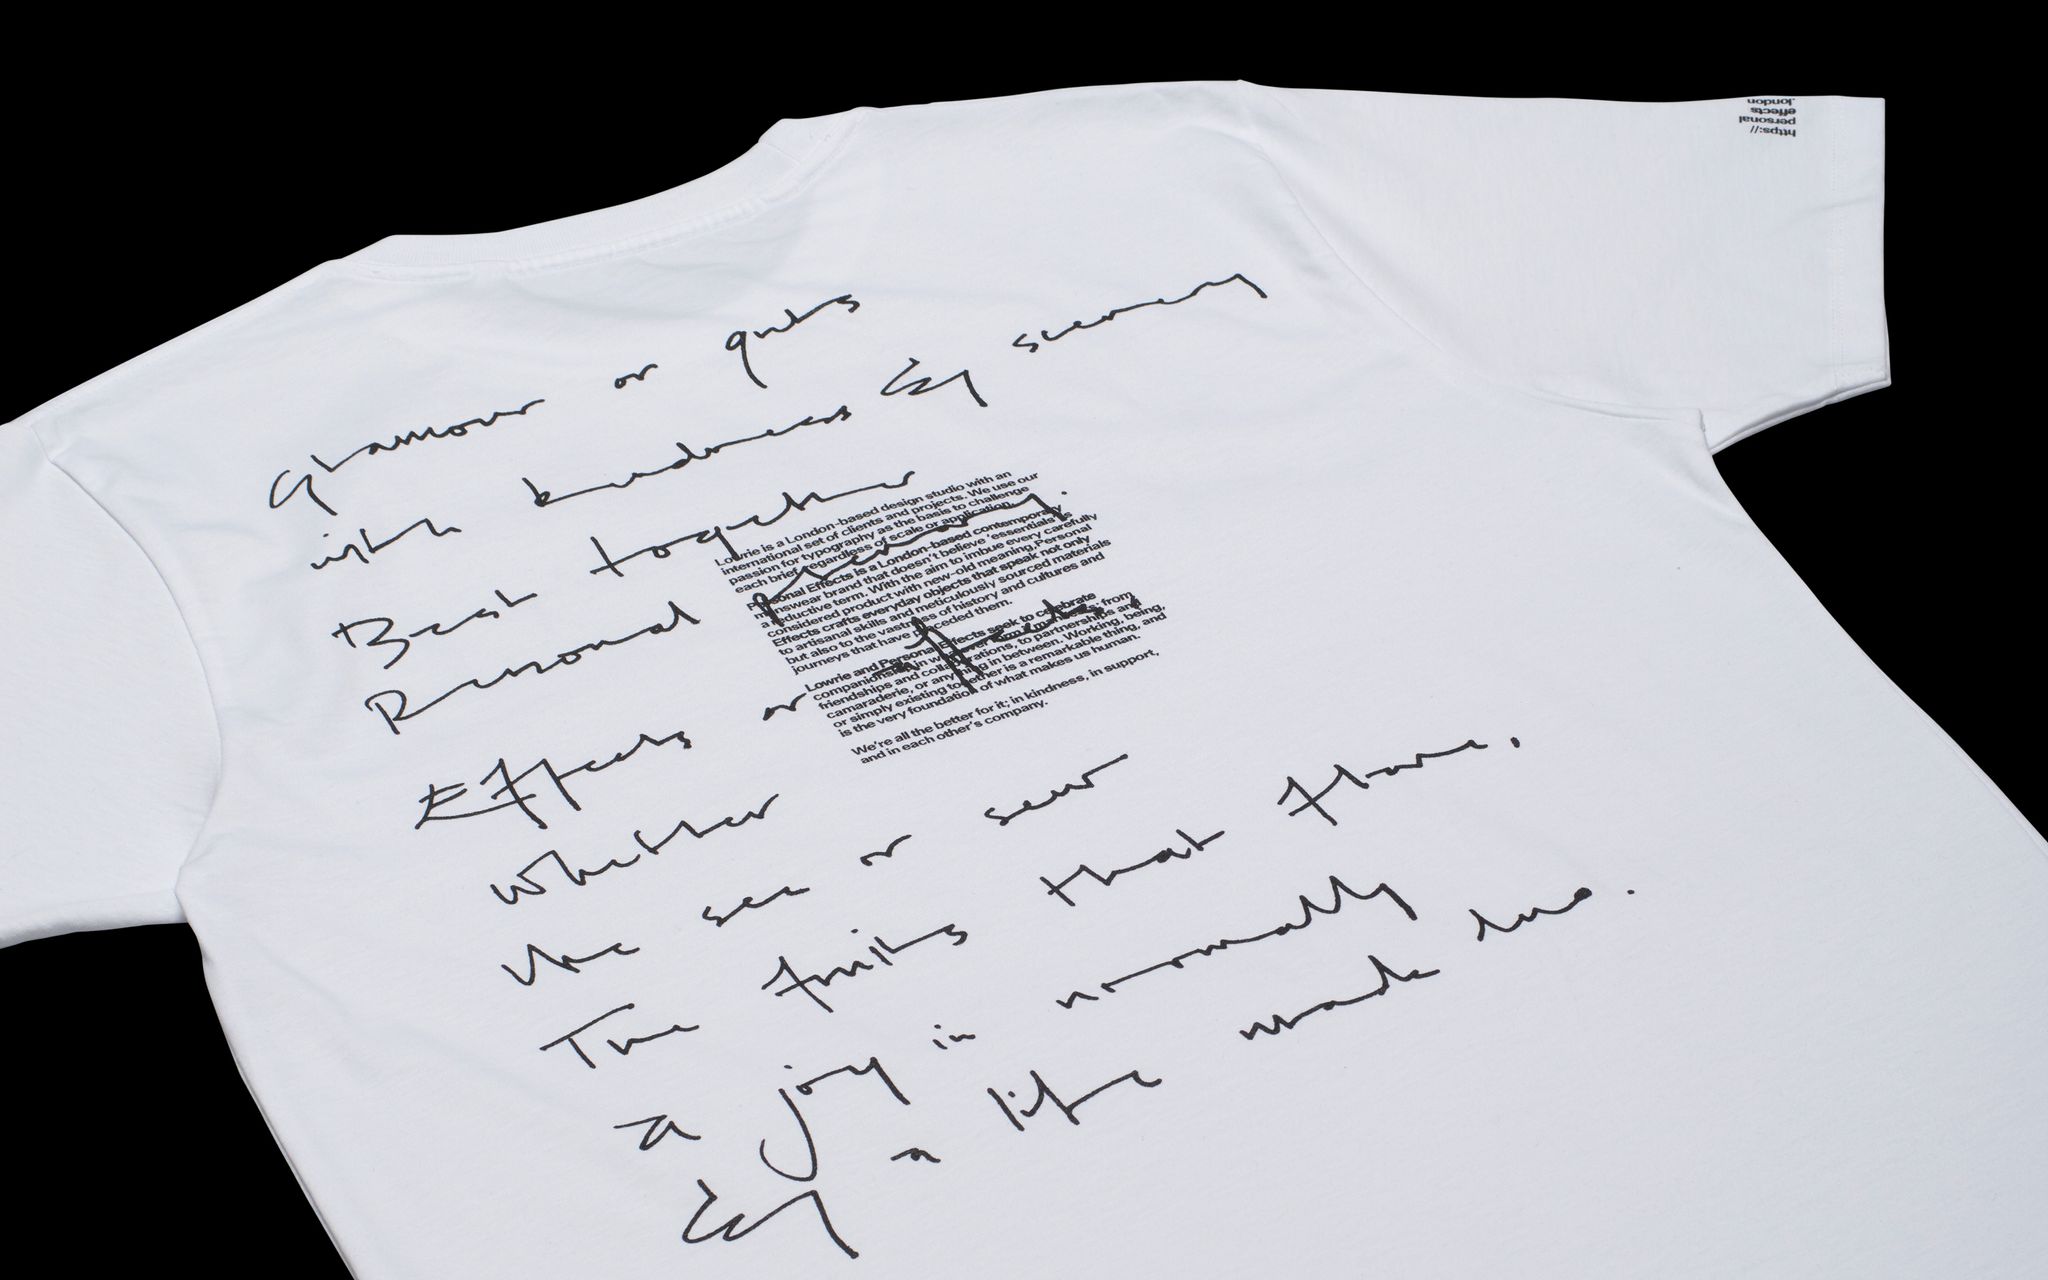 https://
personal
effects
.london
Glamour or guts
with kindness & scenery
Best together
Personal
Effects or
Whether
We see or sew
The fruits that
a joy in normally
& a life made
Lowrie is a London-based design studio with an
international set of clients and projects. We use our
passion for typography as the basis to challenge
each brief, regardless of scale or application.
Personal Effects is a London-based contemporary
menswear brand that doesn't believe 'essentials' is
a reductive term. With the aim to imbue every carefully
considered product with new-old meaning, Personal
Effects crafts everyday objects that speak not only
to artisanal skills and meticulously sourced materials
but also to the vastness of history and cultures and
journeys that have preceded them.
Lowrie and Personal Effects seek to celebrate
companionship in from
friendships and collaborations, to partnerships and
camaraderie, or anything in between. Working, being,
or simply existing together is a remarkable thing, and
is the very foundation of what makes us human.
We're all the better for it; in kindness, in support,
and in each other's company.